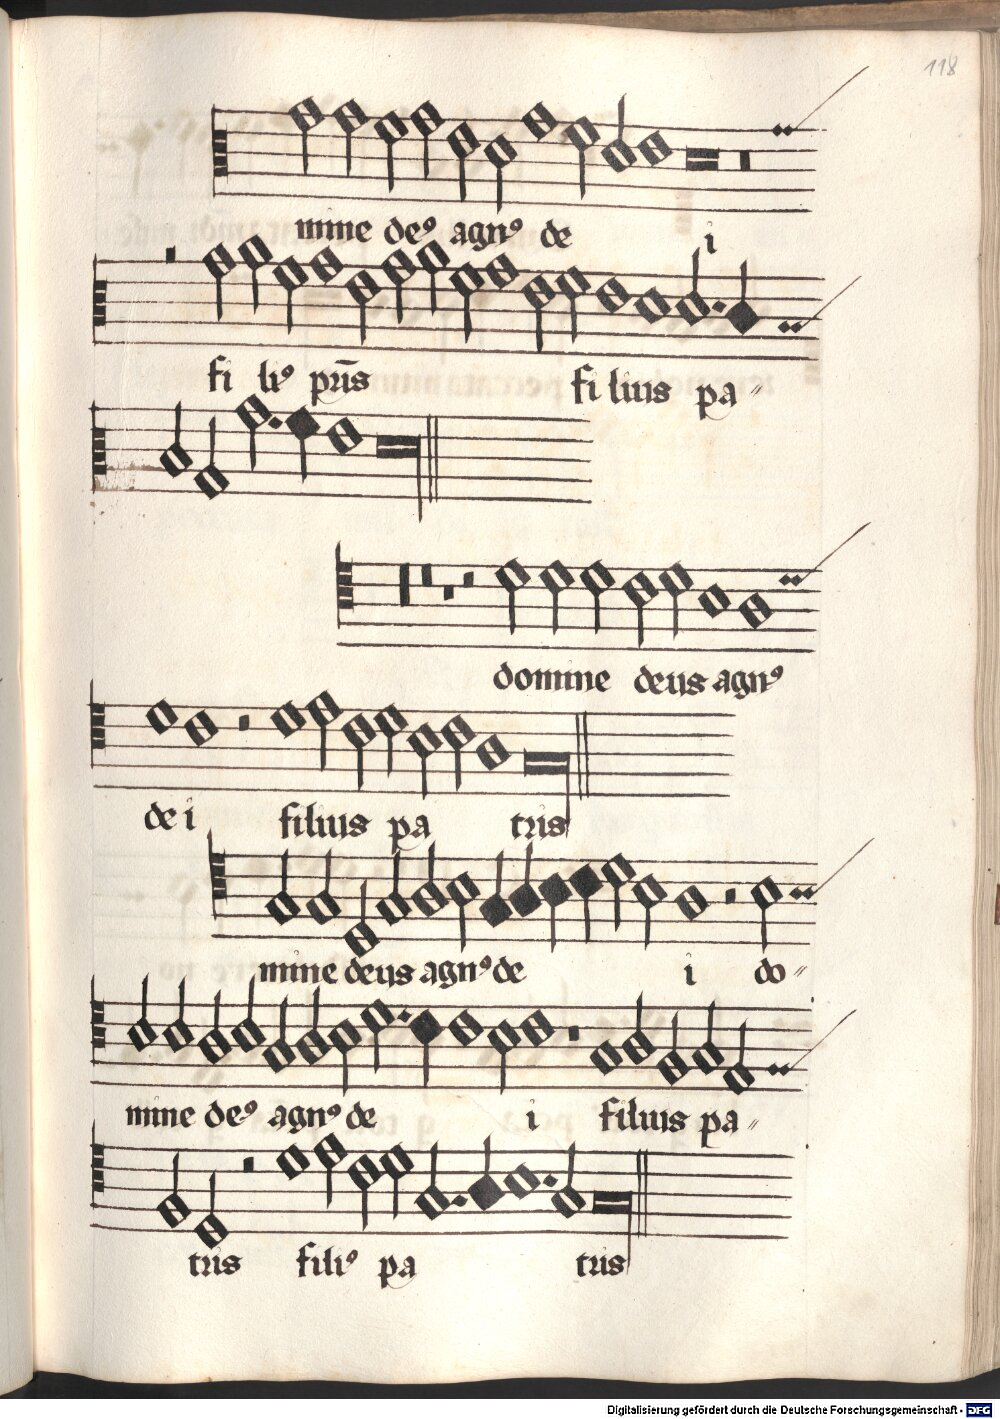 118
mine deꝰ agnꝰ de i
fi liꝰ pr̄is fi lius pa〃
domine deus agnꝰ
de i filius pa tris
mine deus agnꝰ de i do〃
mine deꝰ agnꝰ de i filius pa〃
tris filiꝰ pa tris
Digitalisierung gefördert durch die Deutsche Forschungsgemeinschaft - DFG